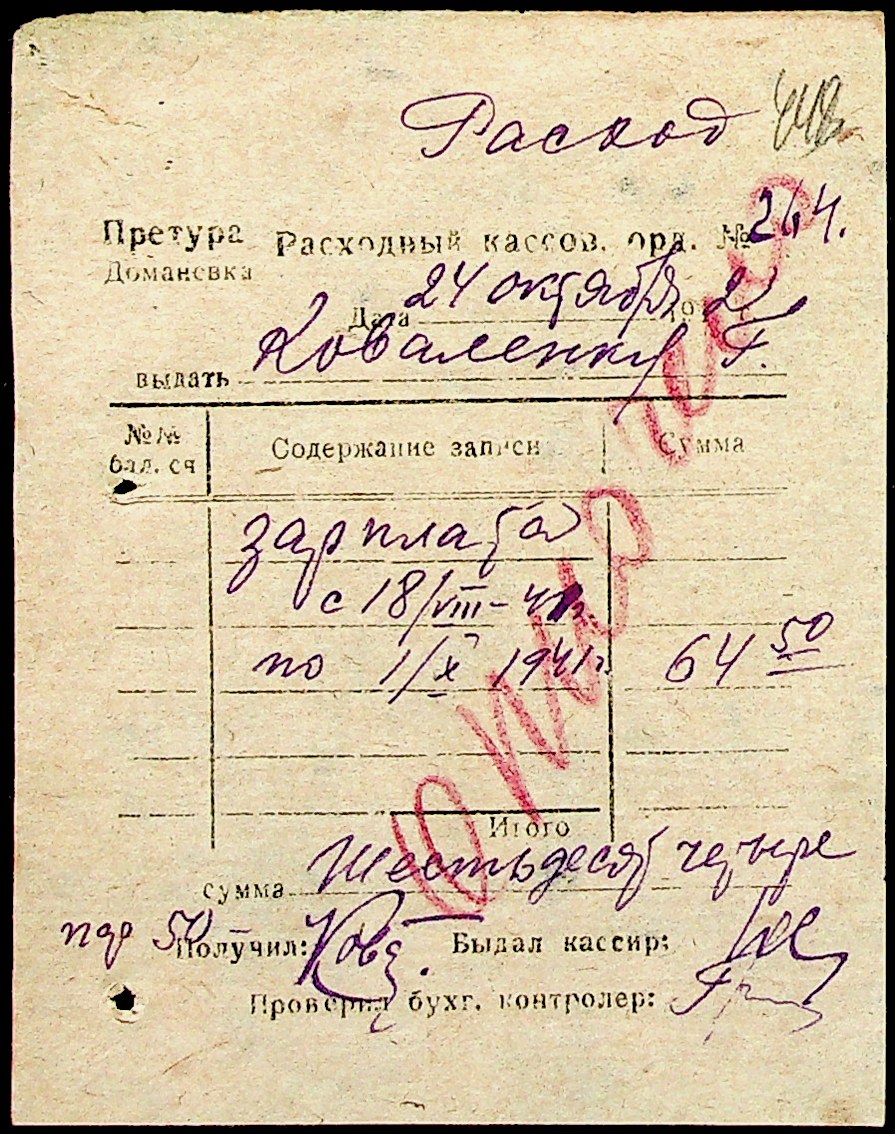 Расход
Претура Расходный кассов. орд. № 264.
Домановка
Дата 24 октября 19 2
выдать Коваленку Г.
№№ бал. сч Содержание записи Сумма
зарплата
с 18/VIII-41г.
по 1/X 1941г. 64 50
Итого
сумма Шестьдесят четыре
пф 50 Получил: Ков Выдал кассир:
Проверил бухг. контролер:
Оплачено